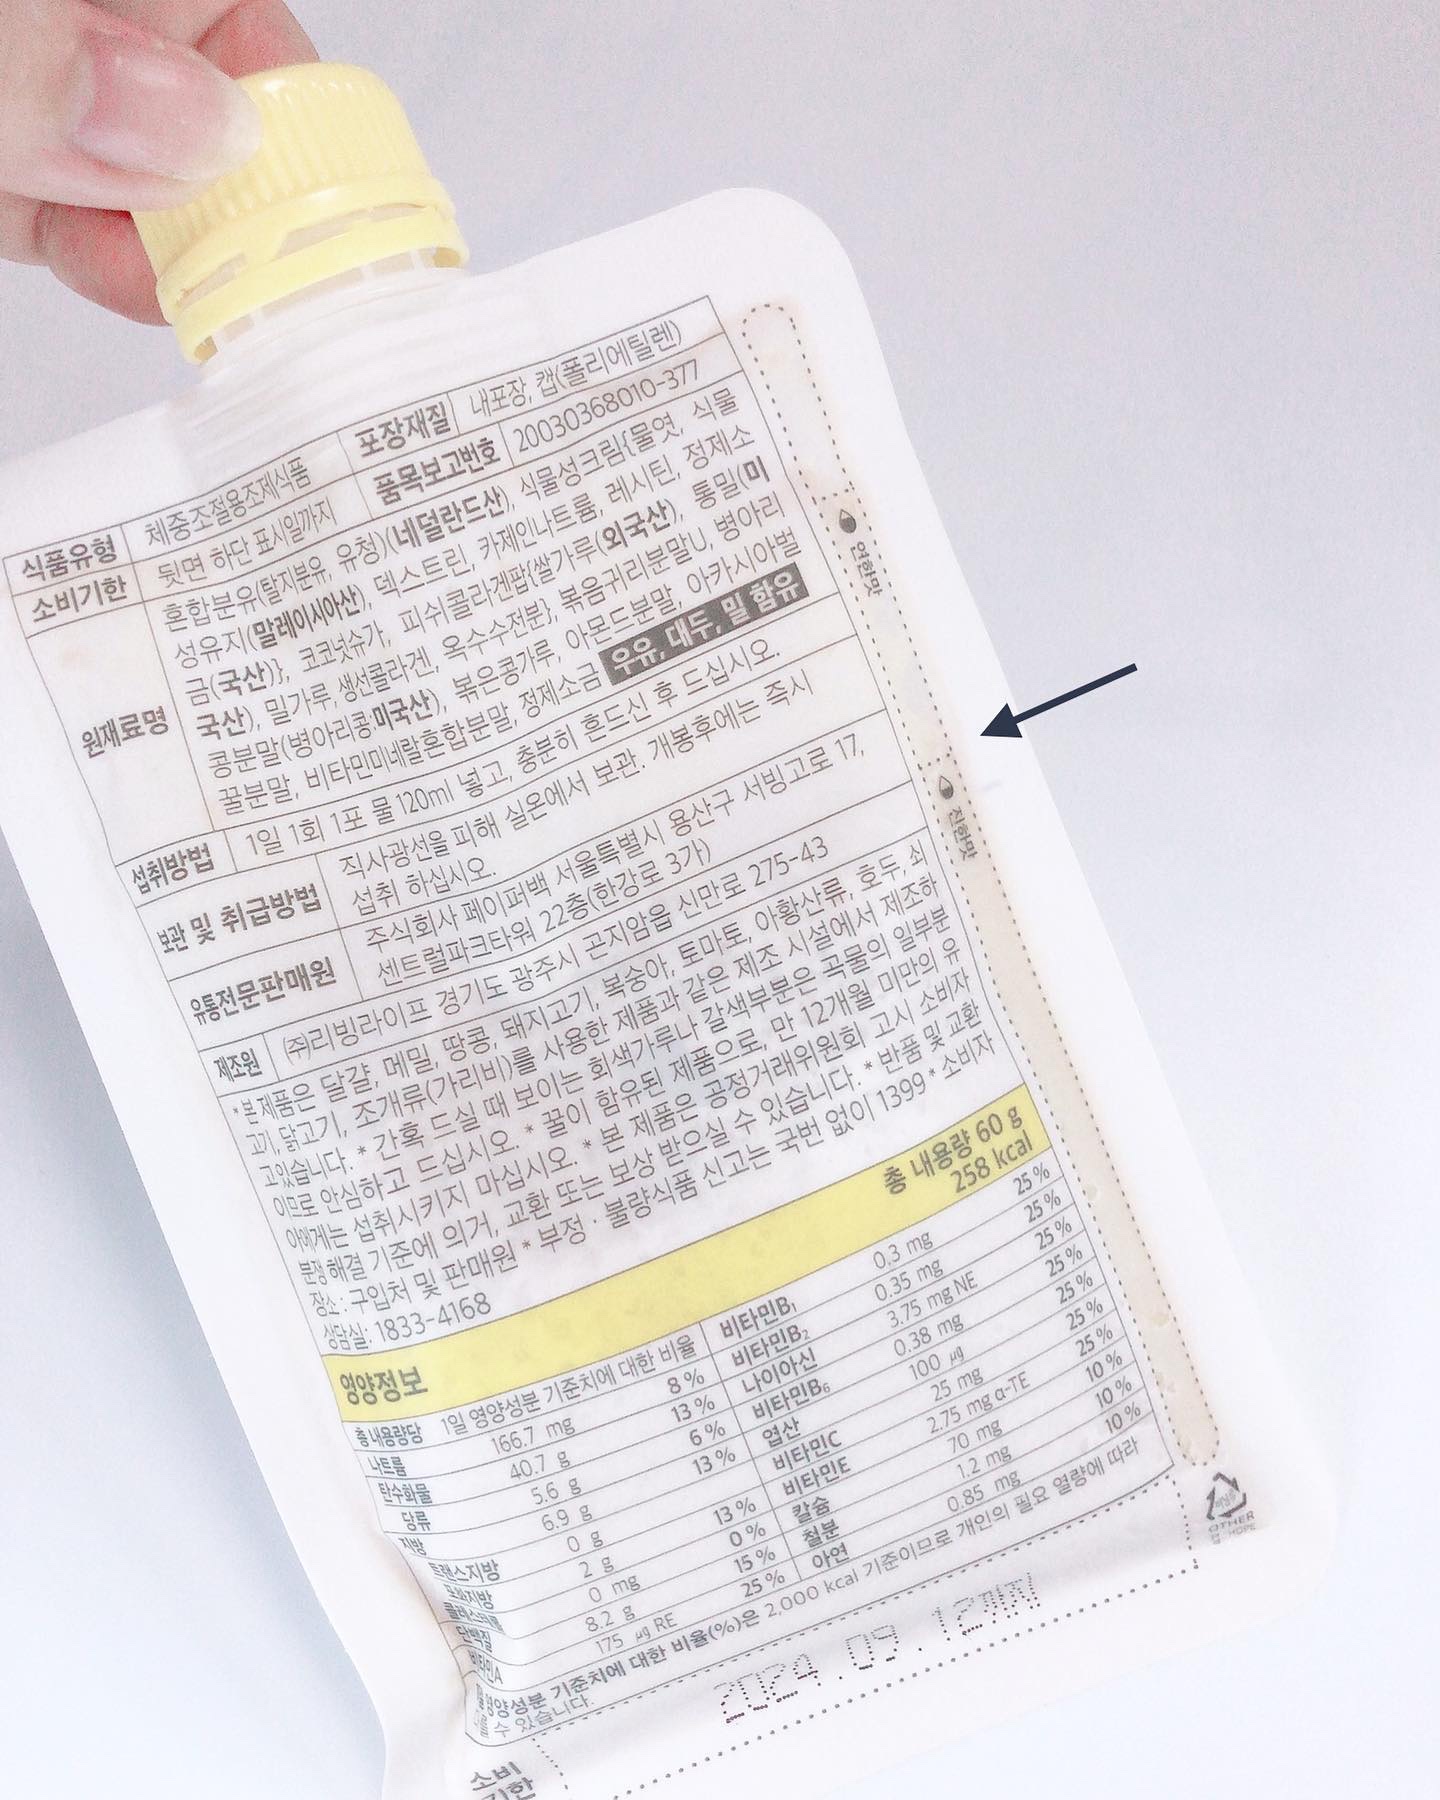 식품유형 체중조절용조제식품 포장재질 내포장, 캡(폴리에틸렌)
소비기한 뒷면 하단 표시일까지 품목보고번호 20030368010-377
원재료명 혼합분유(탈지분유, 유청)(네덜란드산), 식물성크림{물엿, 식물
성유지(말레이시아산), 덱스트린, 카제인나트륨, 레시틴, 정제소
금(국산)}, 코코넛슈가, 피쉬콜라겐팝{쌀가루(외국산), 통밀(미
국산), 밀가루, 생선콜라겐, 옥수수전분}, 볶음귀리분말U, 병아리
콩분말(병아리콩:미국산), 볶은콩가루, 아몬드분말, 아카시아벌
꿀분말, 비타민미네랄혼합분말, 정제소금 우유, 대두, 밀 함유
섭취방법 1일 1회 1포 물 120ml 넣고, 충분히 흔드신 후 드십시오.
보관 및 취급방법 직사광선을 피해 실온에서 보관. 개봉후에는 즉시
섭취 하십시오.
유통전문판매원 주식회사 페이퍼백 서울특별시 용산구 서빙고로 17,
센트럴파크타워 22층(한강로 3가)
제조원 (주)리빙라이프 경기도 광주시 곤지암읍 신만로 275-43
*본 제품은 달걀, 메밀, 땅콩, 돼지고기, 복숭아, 토마토, 아황산류, 호두, 쇠
고기, 닭고기, 조개류(가리비)를 사용한 제품과 같은 제조 시설에서 제조하
고있습니다. * 간혹 드실 때 보이는 회색가루나 갈색부분은 곡물의 일부분
이므로 안심하고 드십시오. * 꿀이 함유된 제품으로, 만 12개월 미만의 유
아에게는 섭취시키지 마십시오. * 본 제품은 공정거래위원회 고시 소비자
분쟁 해결 기준에 의거, 교환 또는 보상 받으실 수 있습니다. * 반품 및 교환
장소 : 구입처 및 판매원 * 부정 · 불량식품 신고는 국번 없이 1399 * 소비자
상담실: 1833-4168
연한맛
진한맛
영양정보 총 내용량 60 g
258 kcal
총 내용량당 1일 영양성분 기준치에 대한 비율
나트륨 166.7 mg 8 %
탄수화물 40.7 g 13 %
당류 5.6 g 6 %
지방 6.9 g 13 %
트랜스지방 0 g
포화지방 2 g 13 %
콜레스테롤 0 mg 0 %
단백질 8.2 g 15 %
비타민A 175 ㎍ RE 25 %
비타민B₁ 0.3 mg 25 %
비타민B₂ 0.35 mg 25 %
나이아신 3.75 mg NE 25 %
비타민B₆ 0.38 mg 25 %
엽산 100 ㎍ 25 %
비타민C 25 mg 25 %
비타민E 2.75 mg α-TE 25 %
칼슘 70 mg 10 %
철분 1.2 mg 10 %
아연 0.85 mg 10 %
1일 영양성분 기준치에 대한 비율(%)은 2,000 kcal 기준이므로 개인의 필요 열량에 따라
다를 수 있습니다.
OTHER
캡 : HDPE
2024.09.12까지
소비
기한